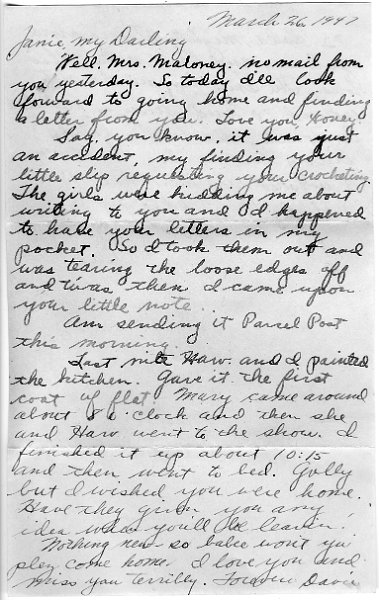 March 26, 1947
Janie, my Darling
Well, Mrs. Maloney, no mail from
you yesterday. So today I'll look
forward to going home and finding
a letter from you. Love you, Honey.
Say, you know, it was just
an accident, my finding your
little slip requesting your crocheting.
The girls were kidding me about
writing to you and I happened
to have your letters in my
pocket. So I took them out and
was tearing the loose edges off
and twas then I came upon
your little note..
Am sending it Parcel Post
this morning.
Last nite Harv. and I painted
the kitchen. Gave it the first
coat of flat. Mary came around
about 8 o'clock and then she
and Harv went to the show. I
finished it up about 10:15
and then went to bed. Golly
but I wished you were home.
Have they given you any
idea when you'll be leavin.
Nothing new so babe won't you
please come home. I love you and
miss you terribly. Forever Dave